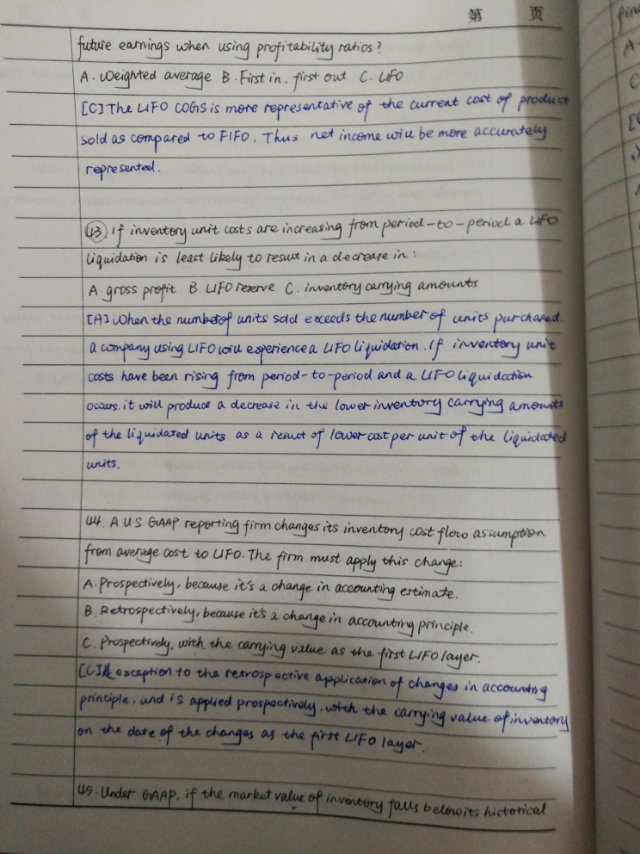 第 页
future earnings when using profitability ratios?
A. Weighted average B. First in, first out C. LIFO
[C] The LIFO COGS is more representative of the current cost of product
sold as compared to FIFO. Thus net income will be more accurately
represented.
43. If inventory unit costs are increasing from period-to-period, a LIFO
liquidation is least likely to result in a decrease in:
A. gross profit B. LIFO reserve C. inventory carrying amounts
[A] When the number of units sold exceeds the number of units purchased.
a company using LIFO will experience a LIFO liquidation. If inventory unit
costs have been rising from period-to-period and a LIFO liquidation
occurs. it will produce a decrease in the lower inventory carrying amounts
of the liquidated units as a result of lower cost per unit of the liquidated
units.
44. A U S GAAP reporting firm changes its inventory cost flow assumption
from average cost to LIFO. The firm must apply this change:
A. Prospectively, because it's a change in accounting estimate.
B. Retrospectively, because it's a change in accounting principle.
C. Prospectively, with the carrying value as the first LIFO layer.
[C] exception to the retrospective application of changes in accounting
principle, and is applied prospectively, with the carrying value of inventory
on the date of the changes as the first LIFO layer.
45. Under GAAP, if the market value of inventory falls below its historical